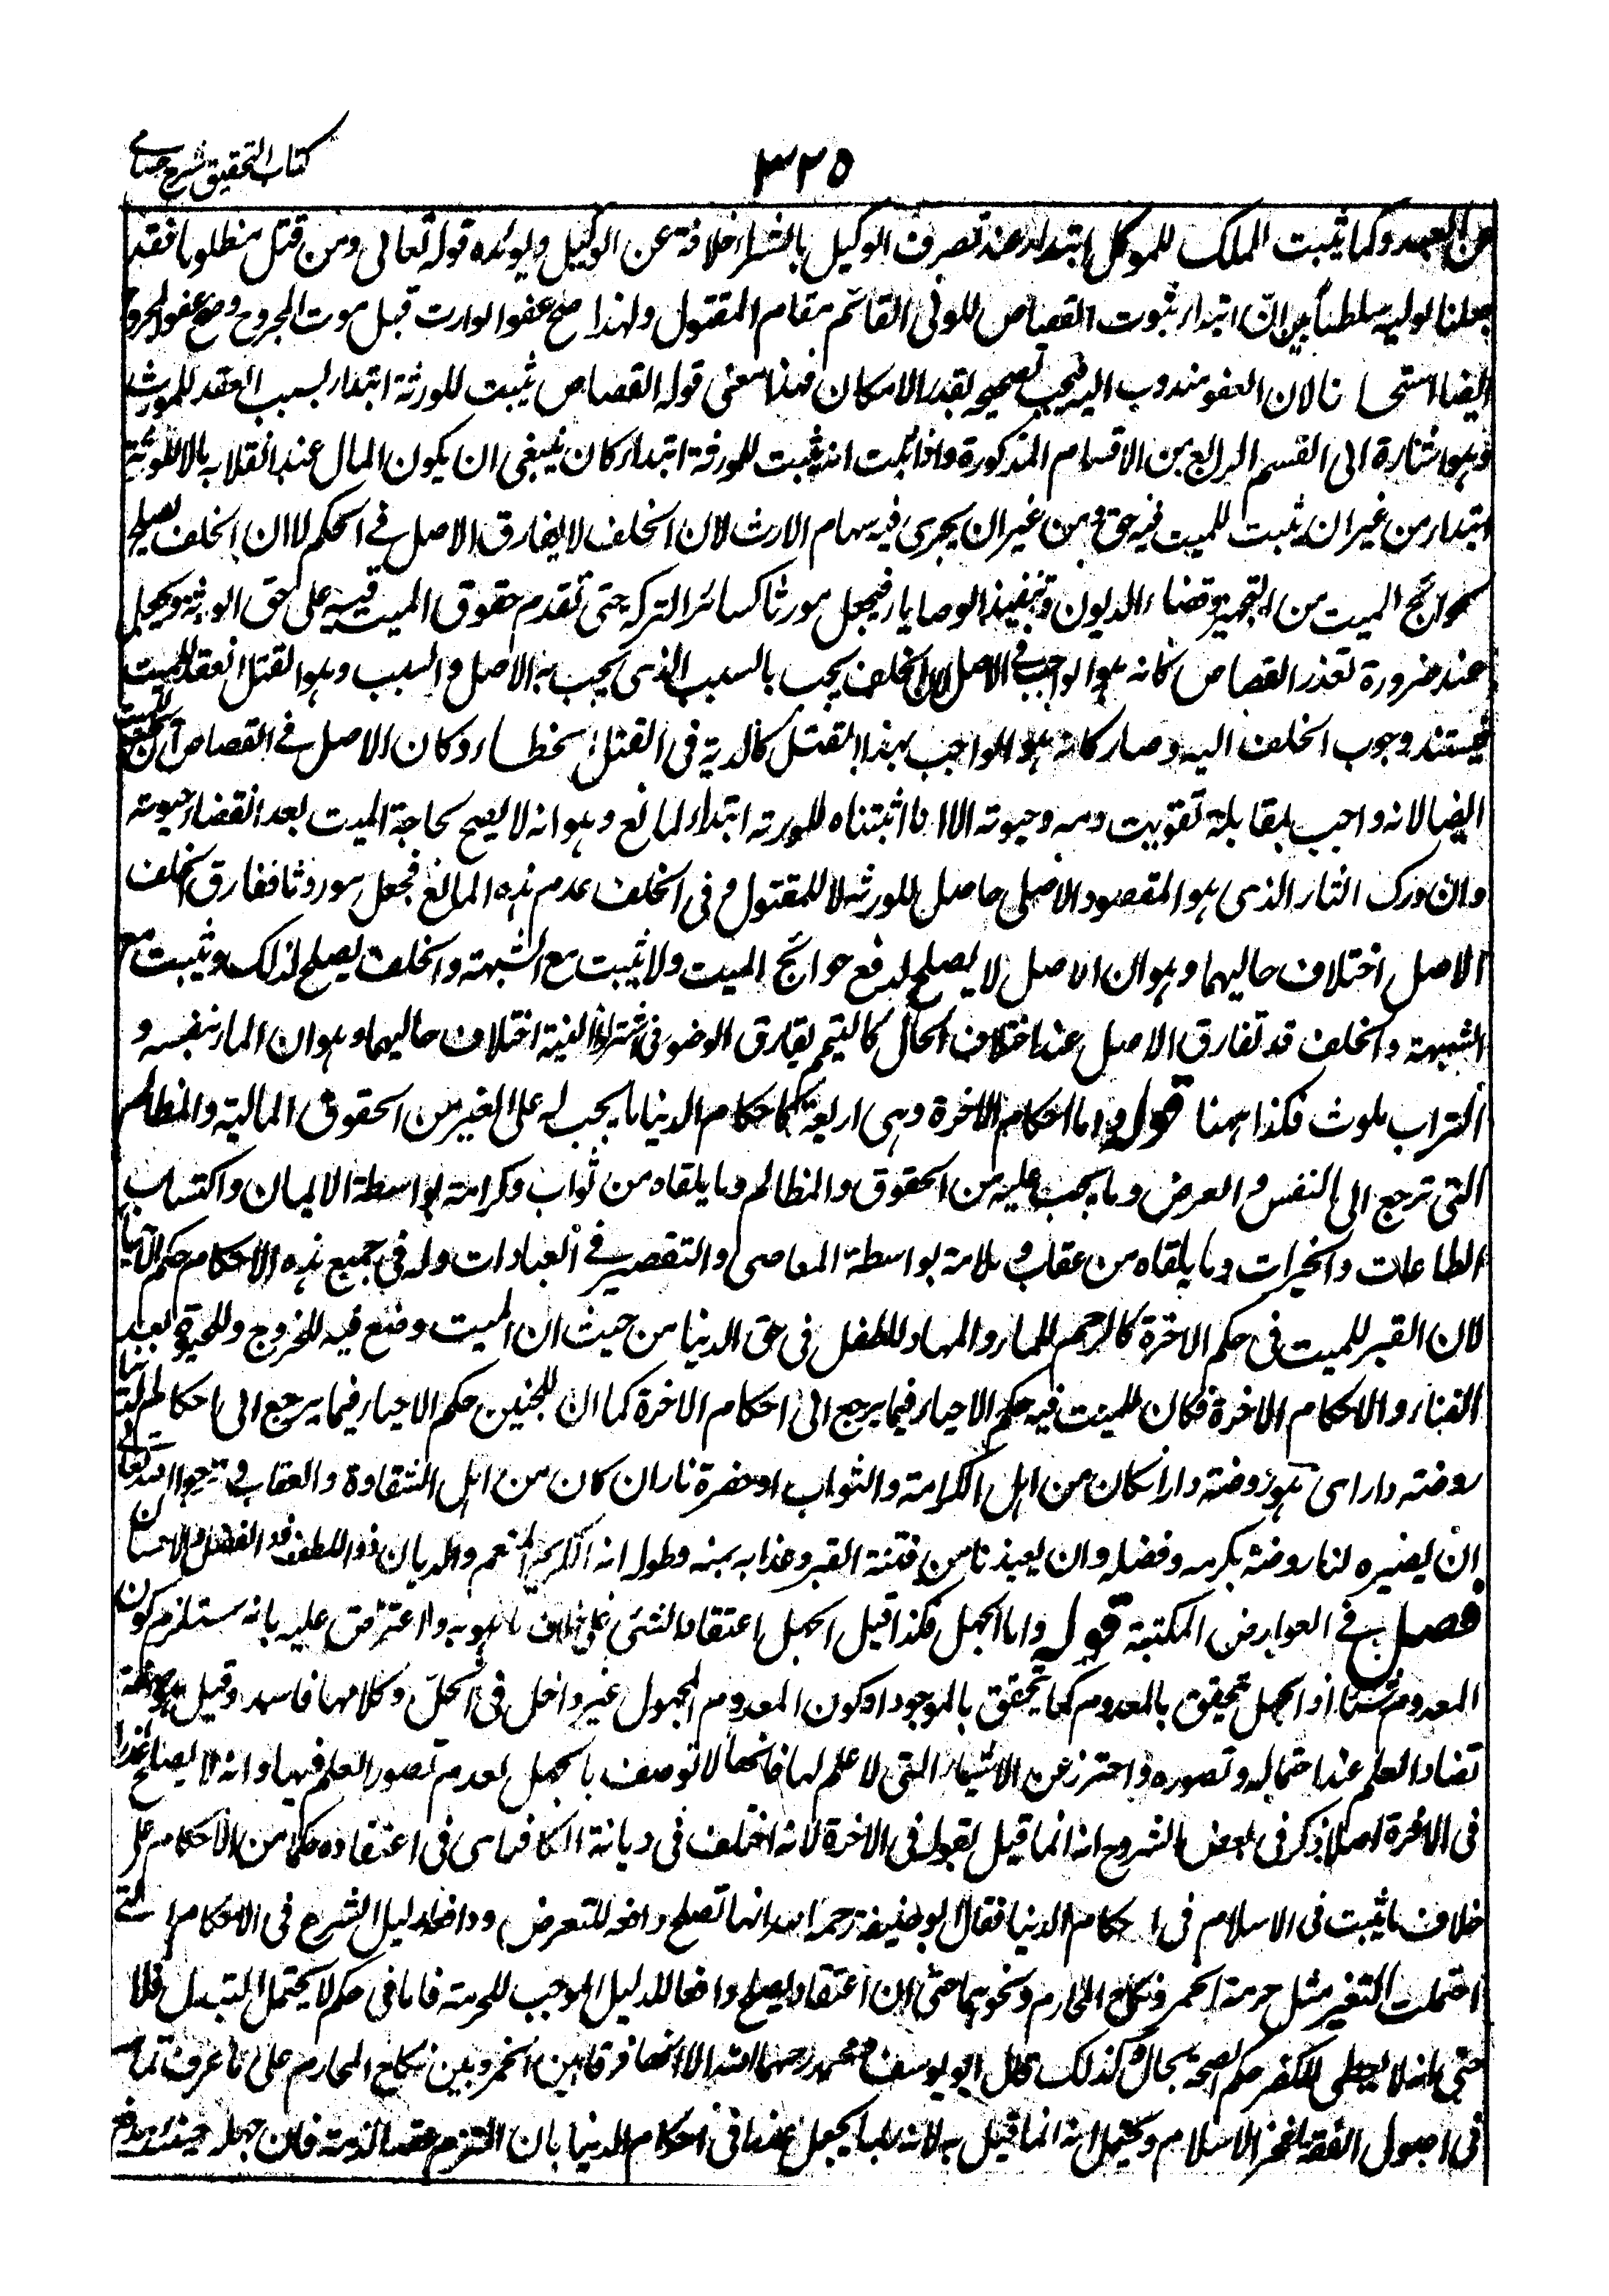 كتاب التحقيق شرح حسامي
٣٢٥
عن العبد وكما يثبت الملك للموكل ابتداء عند تصرف الوكيل بالشراء خلافة عن الوكيل ويؤيده قوله تعالى ومن قتل مظلوما فقد
جعلنا لوليه سلطنا بين ان ابتداء ثبوت القصاص للولى القائم مقام المقتول ولهذا صح عفو الوارث قبل موت المجروح وصح عفو المجروح
ايضا استحسانا لان العفو مندوب اليه فيجب تصحيحه بقدر الامكان فهذا معنى قوله القصاص يثبت للورثة ابتداء بسبب انعقد للمورث
وهو اشارة الى القسم الرابع من الاقسام المذكورة واذا ثبت انه يثبت للورثة ابتداء كان ينبغى ان يكون المال عند انقلابه مالا للورثة
ابتداء من غير ان يثبت للميت فيه حق ومن غير ان يجرى فيه سهام الارث لان الخلف لا يفارق الاصل فى الحكم لا ان الخلف يصلح
لحوائج الميت من التجهيز وقضاء الديون وتنفيذ الوصايا فيجعل مورثا كسائر التركة حتى تقدم حقوق الميت فيه على حق الورثة ويجعل
عند ضرورة تعذر القصاص كانه هو الواجب فى الاصل لان الخلف يجب بالسبب الذى يجب به الاصل والسبب وهو القتل انعقد للميت
فيستند وجوب الخلف اليه وصار كانه هو الواجب بهذا القتل كالدية فى القتل الخطاء وكان الاصل فى القصاص ان
ايضا لانه واجب بمقابلة تفويت دمه وحيوته الا انا اثبتناه للورثة ابتداء لمانع وهو انه لا يصح لحاجة الميت بعد انقضاء حيوته
وان درك الثار الذى هو المقصود الاصلى حاصل للورثة لا للمقتول وفى الخلف عدم هذه الموانع فجعل موروثا ففارق الخلف
الاصل اختلاف حاليهما وهو ان الاصل لا يصلح لدفع حوائج الميت ولا يثبت مع الشبهة والخلف يصلح لذلك ويثبت مع
الشبهة والخلف قد تفارق الاصل عند اختلاف الحال كالتيمم يفارق الوضوء فى اشتراط النية اختلاف حاليهما وهو ان الماء بنفسه و
التراب ملوث فكذا ههنا قوله واما احكام الاخرة وهى اربعة كاحكام الدنيا ما يجب له على الغير من الحقوق المالية والمظالم
التى ترجع الى النفس والعرض وما يجب عليه من الحقوق والمظالم وما يلقاه من ثواب وكرامة بواسطة الايمان واكتساب
الطاعات والخيرات وما يلقاه من عقاب وملامة بواسطة المعاصى والتقصير فى العبادات وله فى جميع هذه الاحكام حكم الاحياء
لان القبر للميت فى حكم الاخرة كالرحم للماء والمهاد للطفل فى حق الدنيا من حيث ان الميت وضع فيه للخروج وللحيوة بعد
الفناء والاحكام الاخرة فكان للميت فيه حكم الاحياء فيما يرجع الى احكام الاخرة كما ان للجنين حكم الاحياء فيما يرجع الى احكام الدنيا
روضة دار اى هو روضة دار ان كان من اهل الكرامة والثواب او حفرة نار ان كان من اهل الشقاوة والعقاب ونرجو الله تعالى
ان يصيره لنا روضة بكرمه وفضله وان يعيذنا من فتنة القبر وعذابه بمنه وطوله انه الكريم المنعم والديان ذو اللطف والفضل والاحسان
فصل فى العوارض المكتسبة قوله واما الجهل فكذا قيل الجهل اعتقاد الشئ على خلاف ما هو به واعترض عليه بانه يستلزم كون
المعدوم شيئا اذ الجهل يتحقق بالمعدوم كما يتحقق بالموجود او كون المعدوم المجهول غير داخل فى الحد وكلامهما فاسد وقيل هو صفة
تضاد العلم عند احتماله وتصوره واحترز عن الاشياء التى لا علم لها فانها لا توصف بالجهل لعدم تصور العلم فيها وانه لا يصلح عذرا
فى الاخرة اصلا ذكر فى بعض الشروح انه انما قيل بقوله فى الاخرة لانه اختلف فى ديانة الكافر اى فى اعتقاده حكما من الاحكام على
خلاف ما يثبت فى الاسلام فى احكام الدنيا فقال ابو حنيفة رحمه الله انها تصلح دافعة للتعرض ودافعة لدليل الشرع فى الاحكام التى
احتملت التغير مثل حرمة الخمر ونكاح المحارم ونحوهما حتى ان اعتقاده يصلح دافعا للدليل الموجب للحرمة فاما فى حكم لا يحتمل التبديل فلا
حتى انه لا يعطى للكفر حكم الصحة بحال وكذلك قال ابو يوسف ومحمد رحمهما الله الا انهما فرقا بين الخمر وبين نكاح المحارم على ما عرف تمامه
فى اصول الفقه لفخر الاسلام ويحتمل انه انما قيل به لانه ربما يجعل عذرا فى احكام الدنيا بان التزم عقد الذمة فان جهله